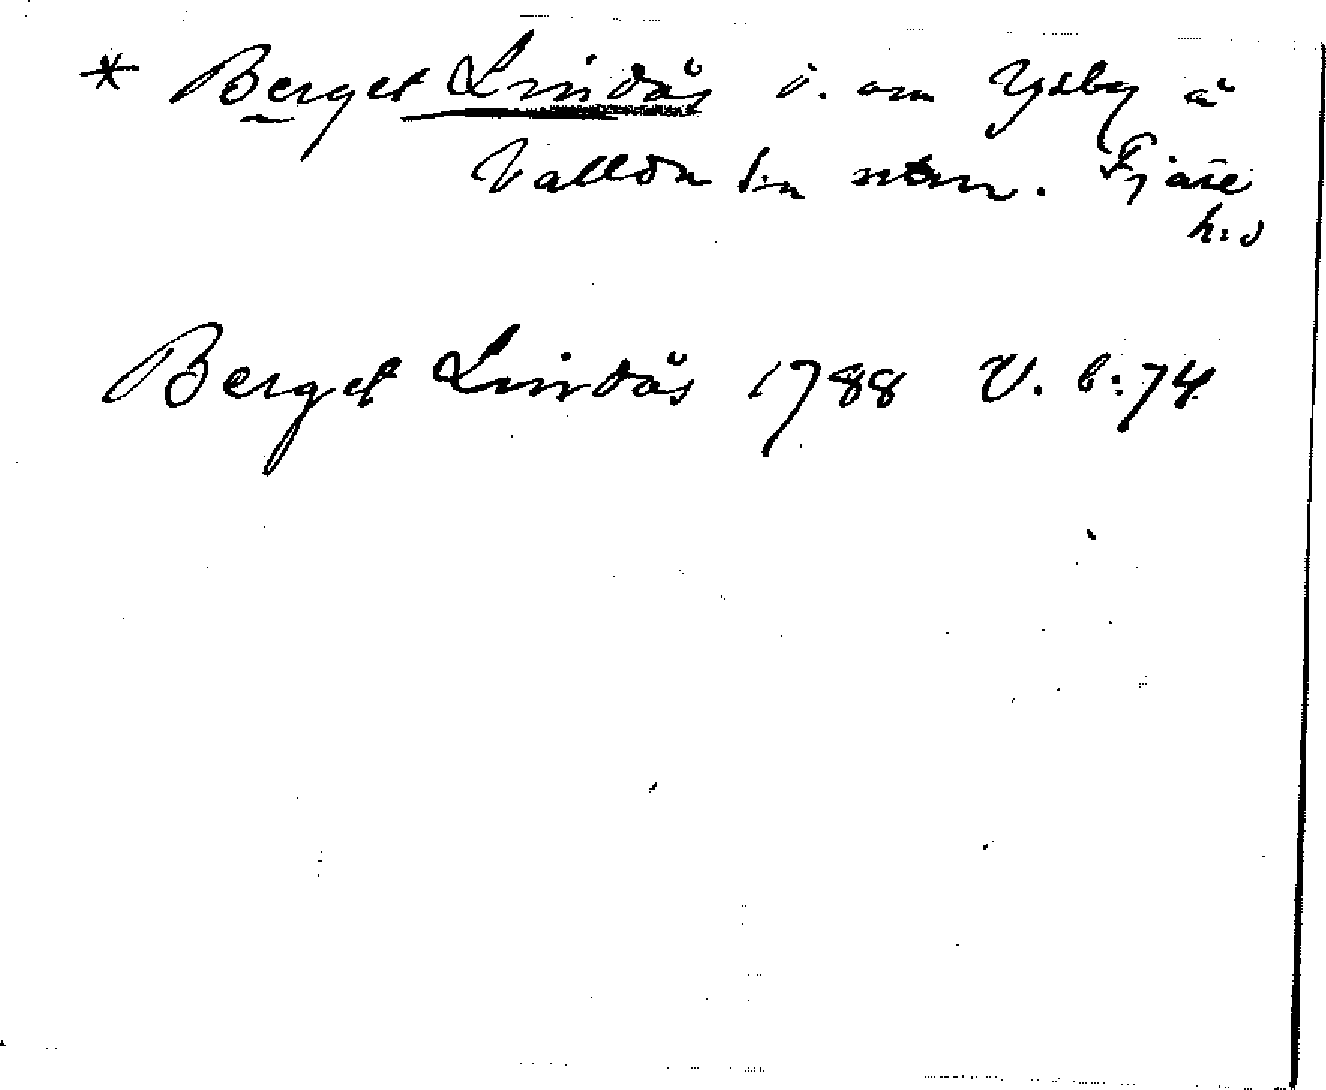 * Berget Lindås ö. om Ysby å
Vallda sn Fjäre
h:d
Berget Lindås 1788 V. b:74